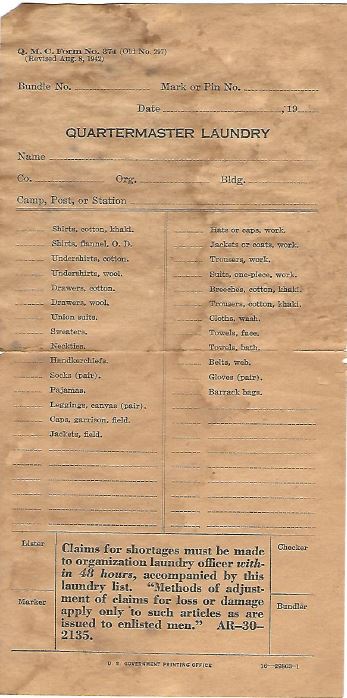 Q. M. C. Form No. 374 (Old No. 297)
(Revised Aug. 8, 1942)
Bundle No. Mark or Pin No.
Date , 19
QUARTERMASTER LAUNDRY
Name
Co. Org. Bldg.
Camp, Post, or Station
Shirts, cotton, khaki.
Shirts, flannel, O. D.
Undershirts, cotton.
Undershirts, wool.
Drawers, cotton.
Drawers, wool.
Union suits.
Sweaters.
Neckties.
Handkerchiefs.
Socks (pair).
Pajamas.
Leggings, canvas (pair).
Caps, garrison, field.
Jackets, field.
Hats or caps, work.
Jackets or coats, work.
Trousers, work.
Suits, one-piece, work.
Breeches, cotton, khaki.
Trousers, cotton, khaki.
Cloths, wash.
Towels, face.
Towels, bath.
Belts, web.
Gloves (pair).
Barrack bags.
Lister
Marker
Claims for shortages must be made
to organization laundry officer with-
in 48 hours, accompanied by this
laundry list. "Methods of adjust-
ment of claims for loss or damage
apply only to such articles as are
issued to enlisted men." AR-30-
2135.
Checker
Bundler
U. S. GOVERNMENT PRINTING OFFICE 16—29803-1